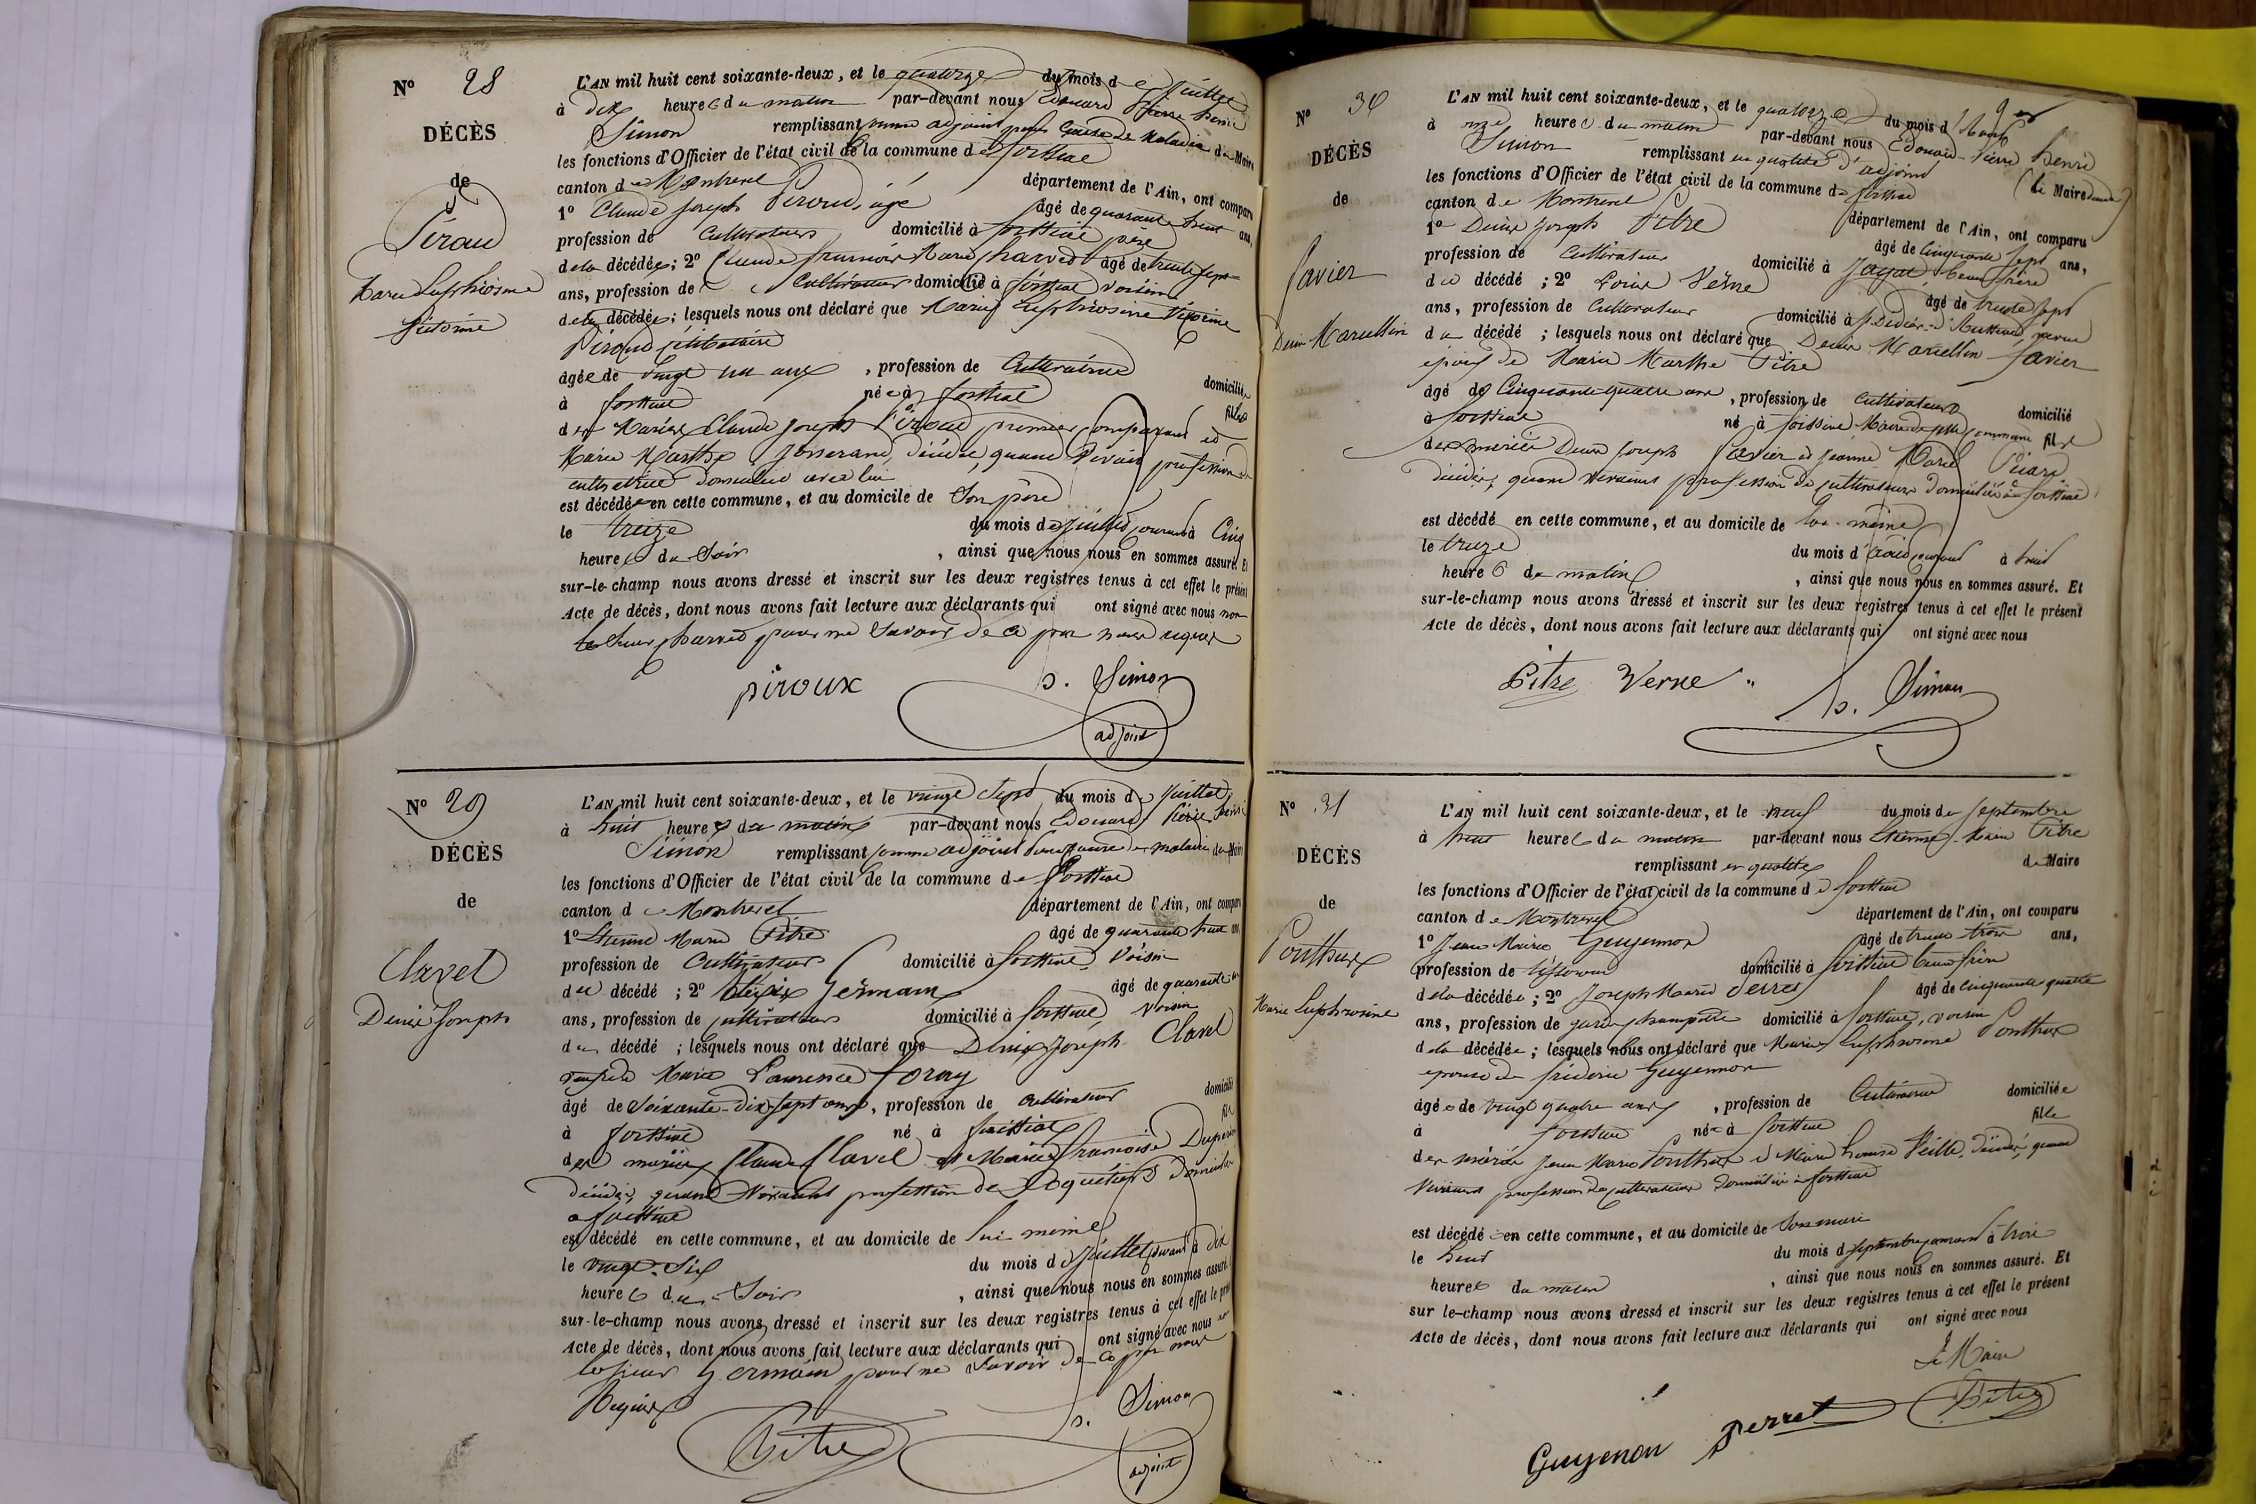 N° 28
DÉCÈS
de
Piroud
Marie Euphrosine
Victorine
L'AN mil huit cent soixante-deux, et le quatorze du mois de Juillet
à dix heures du matin par-devant nous Edouard Pierre Henri
Simon remplissant comme adjoint pour cause de maladie du Maire
les fonctions d'Officier de l'état civil de la commune de foissiat
canton de Montrevel département de l'Ain, ont comparu
1° Claude Joseph Piroud, âgé de quarante huit ans,
profession de Cultivateur domicilié à foissiat père
de la décédée; 2° Claude Marie Charvet âgé de trente sept
ans, profession de Cultivateur domicilié à foissiat voisin
de la décédée; lesquels nous ont déclaré que Marie Euphrosine Victorine
Piroud célibataire
âgée de vingt un ans, profession de Cultivatrice domiciliée
à foissiat née à foissiat fille
des Mariés Claude Joseph Piroud premier comparant et
Marie Marthe Josserand, décédée, quand vivait profession de
cultivatrice domiciliée avec lui
est décédée en cette commune, et au domicile de Son père
le treize du mois de Juillet courant à Cinq
heures du Soir, ainsi que nous nous en sommes assuré. Et
sur-le-champ nous avons dressé et inscrit sur les deux registres tenus à cet effet le présent
Acte de décès, dont nous avons fait lecture aux déclarants qui ont signé avec nous non
le sieur Charvet pour ne savoir de ce par nous requis
piroux h. Simon
adjoint
N° 29
DÉCÈS
de
Clavel
Denis Joseph
L'AN mil huit cent soixante-deux, et le vingt Sept du mois de Juillet
à huit heures du matin par-devant nous Edouard Pierre Henri
Simon remplissant comme adjoint pour cause de maladie du Maire
les fonctions d'Officier de l'état civil de la commune de foissiat
canton de Montrevel département de l'Ain, ont comparu
1° Etienne Marie Pitre âgé de quarante huit ans
profession de Cultivateur domicilié à foissiat Voisin
du décédé; 2° Alexis Germain âgé de quarante un
ans, profession de cultivateur domicilié à foissiat, Voisin
du décédé; lesquels nous ont déclaré que Denis Joseph Clavel
veuf de Marie Laurence Foray
âgé de Soixante-dix-sept ans, profession de cultivateur domicilié
à foissiat né à foissiat fils
des mariés Claude Clavel et Marie Françoise
décédés, quand Vivaient profession de Coquetiers domiciliés
à foissiat
est décédé en cette commune, et au domicile de lui même
le vingt-Six du mois de Juillet courant à dix
heures du Soir, ainsi que nous nous en sommes assuré.
sur-le-champ nous avons dressé et inscrit sur les deux registres tenus à cet effet le présent
Acte de décès, dont nous avons fait lecture aux déclarants qui ont signé avec nous non
le sieur Germain pour ne savoir de ce par nous
Requis
Pitre h. Simon
adjoint
N° 30
DÉCÈS
de
Favier
Denis Marcellin
L'AN mil huit cent soixante-deux, et le quatorze du mois d'Août
à onze heures du matin par-devant nous Edouard Pierre Henri
Simon remplissant en qualité d'adjoint (le Maire
les fonctions d'Officier de l'état civil de la commune de foissiat
canton de Montrevel département de l'Ain, ont comparu
1° Denis Joseph Pitre âgé de Cinquante sept ans,
profession de Cultivateur domicilié à Jayat beau frère
du décédé; 2° Louis Verne âgé de trente sept
ans, profession de Cultivateur domicilié à St Didier d'Aussiat neveu
du décédé; lesquels nous ont déclaré que Denis Marcellin Favier
époux de Marie Marthe Pitre
âgé de Cinquante quatre ans, profession de Cultivateur domicilié
à foissiat né à foissiat fils
des mariés Denis Joseph Favier et Jeanne Marie
décédés, quand vivaient profession de cultivateurs domiciliés à foissiat
est décédé en cette commune, et au domicile de lui-même
le treize du mois d'Août courant à huit
heures du matin, ainsi que nous nous en sommes assuré. Et
sur-le-champ nous avons dressé et inscrit sur les deux registres tenus à cet effet le présent
Acte de décès, dont nous avons fait lecture aux déclarants qui ont signé avec nous
Pitre Verne h. Simon
N° 31
DÉCÈS
de
Ponthus
Marie Euphrosine
L'AN mil huit cent soixante-deux, et le neuf du mois de Septembre
à huit heures du matin par-devant nous Etienne Marie Pitre
remplissant en qualité de Maire
les fonctions d'Officier de l'état civil de la commune de foissiat
canton de Montrevel département de l'Ain, ont comparu
1° Jean Marie Guyennon âgé de trente trois ans,
profession de tisserand domicilié à foissiat beau frère
de la décédée; 2° Joseph Marie Perret âgé de cinquante quatre
ans, profession de garde champêtre domicilié à foissiat, voisin
de la décédée; lesquels nous ont déclaré que Marie Euphrosine Ponthus
épouse de frédéric Guyennon
âgée de vingt quatre ans, profession de Cultivatrice domiciliée
à foissiat née à foissiat fille
des mariés Jean Marie Ponthus et Marie Louise décédés, quand
Vivaient profession de cultivateurs domiciliés à foissiat
est décédée en cette commune, et au domicile de son mari
le huit du mois de Septembre courant à trois
heures du matin, ainsi que nous nous en sommes assuré. Et
sur le-champ nous avons dressé et inscrit sur les deux registres tenus à cet effet le présent
Acte de décès, dont nous avons fait lecture aux déclarants qui ont signé avec nous
Le Maire
Guyenon Perret Pitre